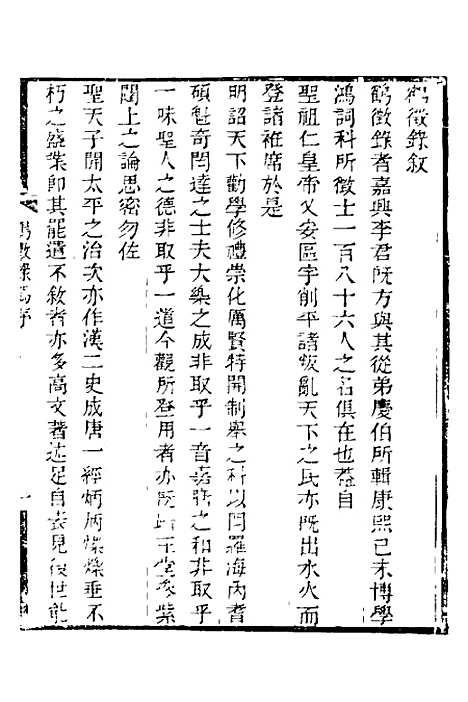 鶴徵錄敘
鶴徵錄者嘉興李君旣方與其從弟慶伯所輯康熙己未博學
鴻詞科所徵士一百八十六人之名俱在也蓋自
聖祖仁皇帝乂安區宇削平諸叛亂天下之民亦旣出水火而
登諸袵席於是
明詔天下勸學修禮崇化厲賢特開制舉之科以網羅海內耆
碩魁奇閎達之士夫大樂之成非取乎一音嘉膳之和非取乎
一味聖人之德非取乎一道今觀所登用者亦旣步玉堂紫
闥上之論思密勿佐
聖天子開太平之治次亦作漢二史成唐一經炳炳燦燦垂不
朽之盛業卽其罷遣不敘者亦多高文著述足自表見後世能
鶴徵錄 序 一